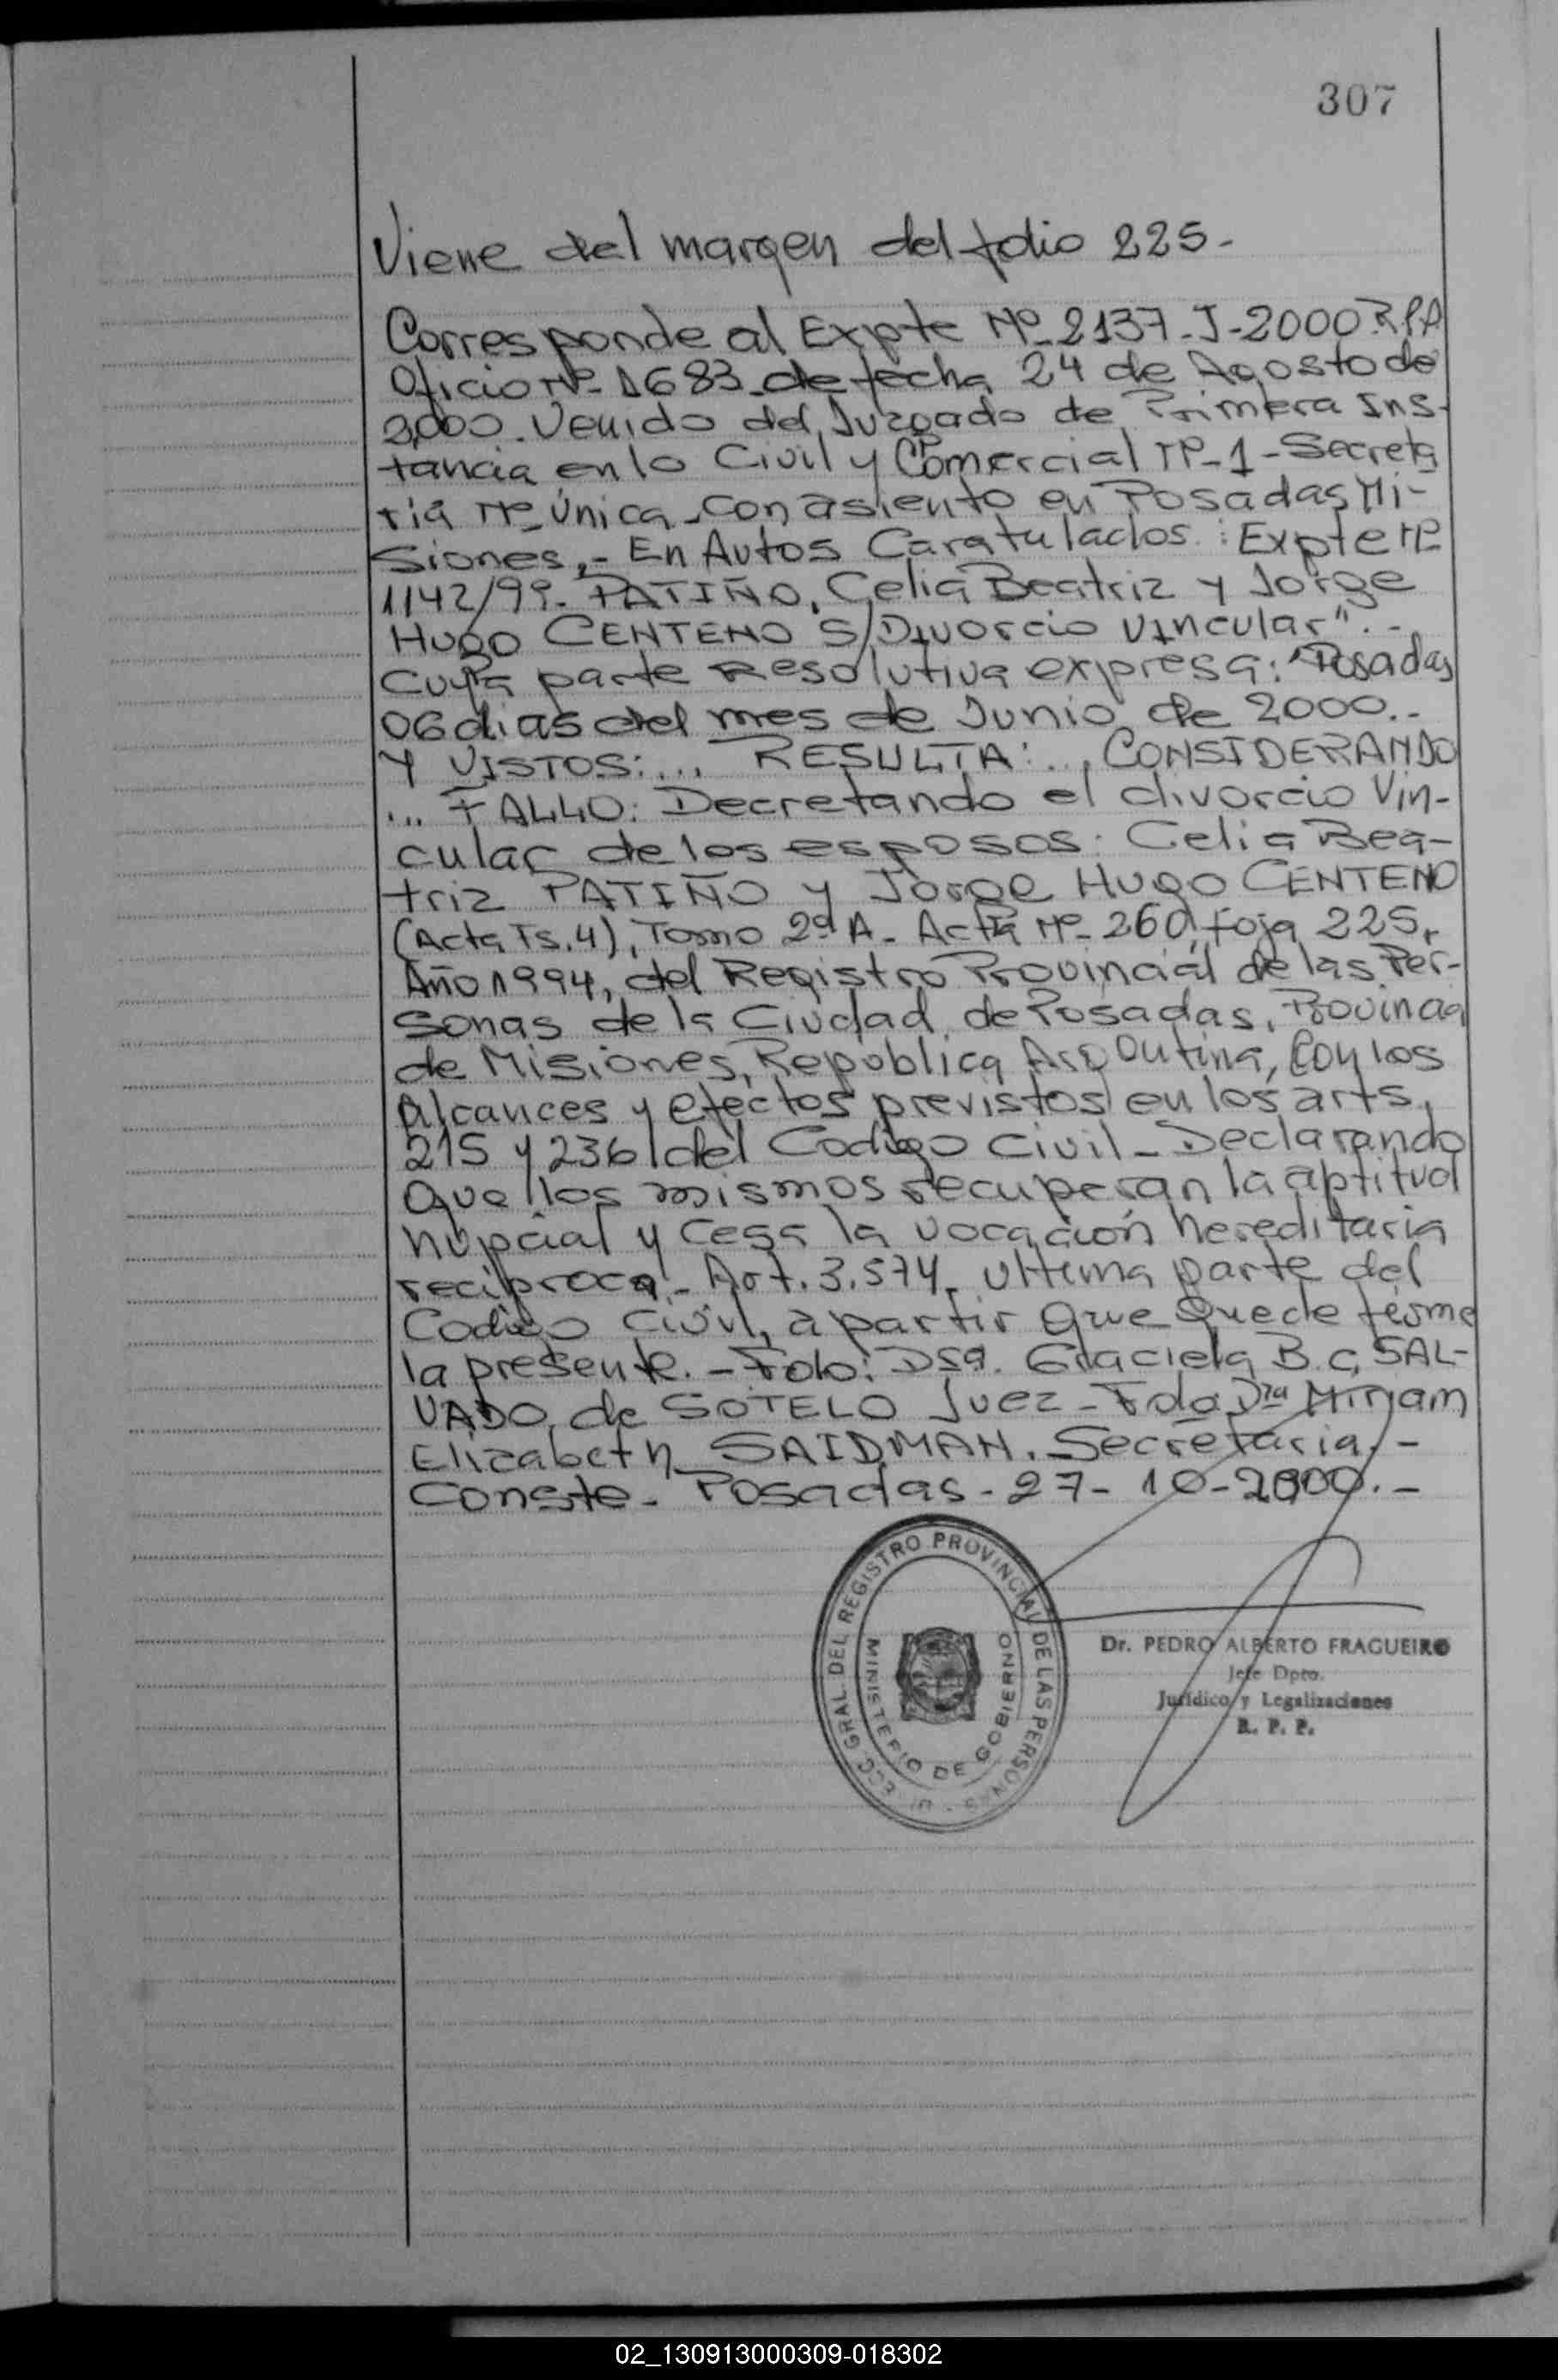 307
Viene del margen del folio 225-
Corresponde al Expte Nº 2137-J-2000 R.P.P.
Oficio Nº 1683 de fecha 24 de Agosto de
2,000. Venido del Juzgado de Primera Ins-
tancia en lo Civil y Comercial Nº-1-Secreta
ria Nº Única-con asiento en Posadas Mi-
siones,- En Autos Caratulados: Expte Nº
1142/99- PATIÑO, Celia Beatriz y Jorge
Hugo CENTENO S/Divorcio Vincular".-
Cuya parte Resolutiva expresa: "Posadas
06 dias del mes de Junio de 2000.-
Y VISTOS:... RESULTA:... CONSIDERANDO
... FALLO: Decretando el divorcio Vin-
cular de los esposos: Celia Bea-
triz PATIÑO y Jorge Hugo CENTENO
(Acta Fs. 4), Tomo 2º A- Acta Nº 260, foja 225,
Año 1994, del Registro Provincial de las Per-
sonas de la Ciudad de Posadas, Provincia
de Misiones, Republica Argentina, Con los
alcances y efectos previstos en los arts,
215 y 236 del Codigo Civil- Declarando
que los mismos recuperan la aptitud
nupcial y Cesa la vocación hereditaria
reciproca- Art. 3.574- ultima parte del
Codigo Civil, a partir que Quede firme
la presente.- Fdo: Dra. Graciela B. C, SAL-
VADO de SOTELO Juez- Fdo Dra Miryam
Elizabeth SAIDMAN. Secretaria.-
Conste- Posadas-27-10-2000.-
DIRECC. GRAL. DEL REGISTRO PROVINCIAL DE LAS PERSONAS
MINISTERIO DE GOBIERNO
Dr. PEDRO ALBERTO FRAGUEIRO
Jefe Dpto.
Jurídico y Legalizaciones
R. P. P.
02_130913000309-018302